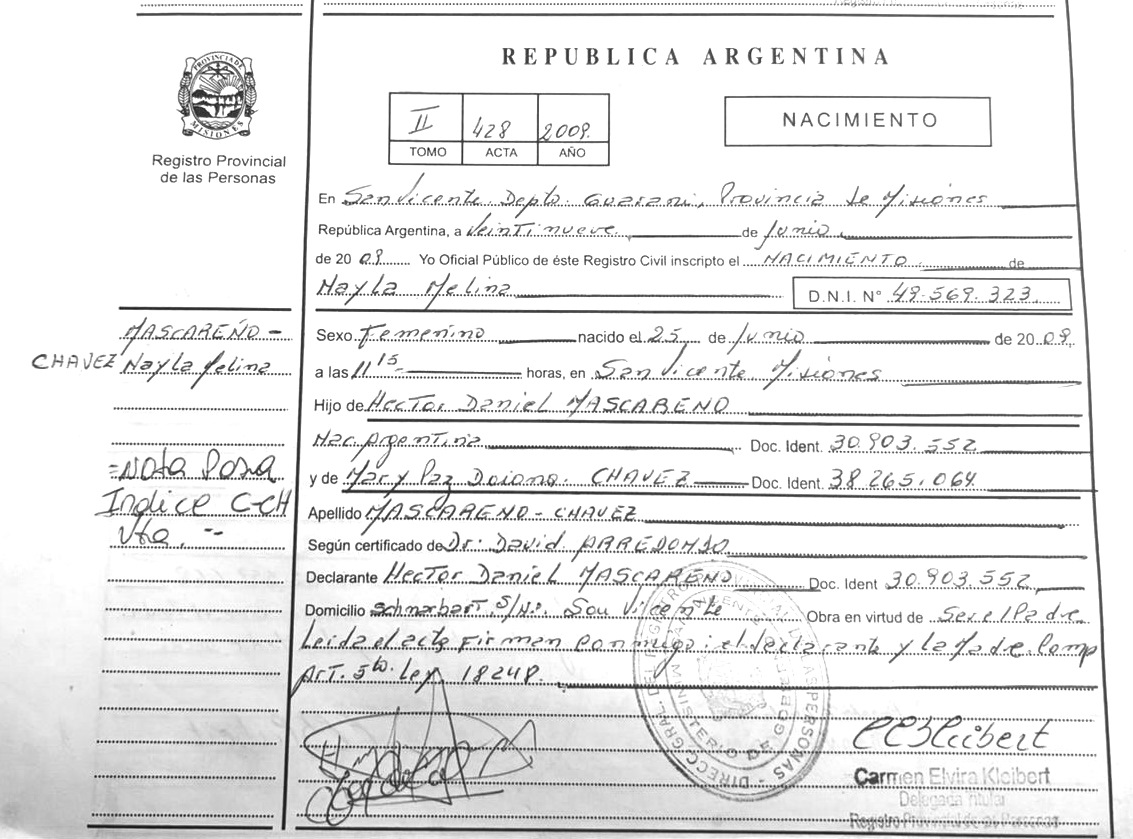 REPUBLICA ARGENTINA
PROVINCIA DE MISIONES
Registro Provincial
de las Personas
II 428 2009.
TOMO ACTA AÑO
NACIMIENTO
En San Vicente Depto. Guarani, Provincia de Misiones
República Argentina, a Veintinueve de Junio
de 2009 Yo Oficial Público de éste Registro Civil inscripto el NACIMIENTO de
Nayla Melina D.N.I. N° 49.569.323
MASCAREÑO -
CHAVEZ Nayla Melina
Sexo Femenino nacido el 25 de Junio de 2009
a las 11 15 horas, en San Vicente, Misiones
Hijo de Hector Daniel MASCAREÑO
Nac. Argentina Doc. Ident. 30.903.552
y de Mary Paz Daiana CHAVEZ Doc. Ident. 38.265.064
Apellido MASCAREÑO - CHAVEZ
=Nota
Indice C-CH
Vta. --
Según certificado de Dr. David ARREDONDO
Declarante Hector Daniel MASCAREÑO Doc. Ident 30.903.552
Domicilio S/N: San Vicente Obra en virtud de Ser el Padre
Leida el acta Firman conmigo: el declarante y la Madre Comp
Art. 5to. Ley 18248.
DIRECC. GRAL. DEL REGISTRO PROVINCIAL DE LAS PERSONAS
MINISTERIO DE GOBIERNO
SAN VICENTE
Carmen Elvira Kleibert
Delegada Titular
Registro Provincial de las Personas